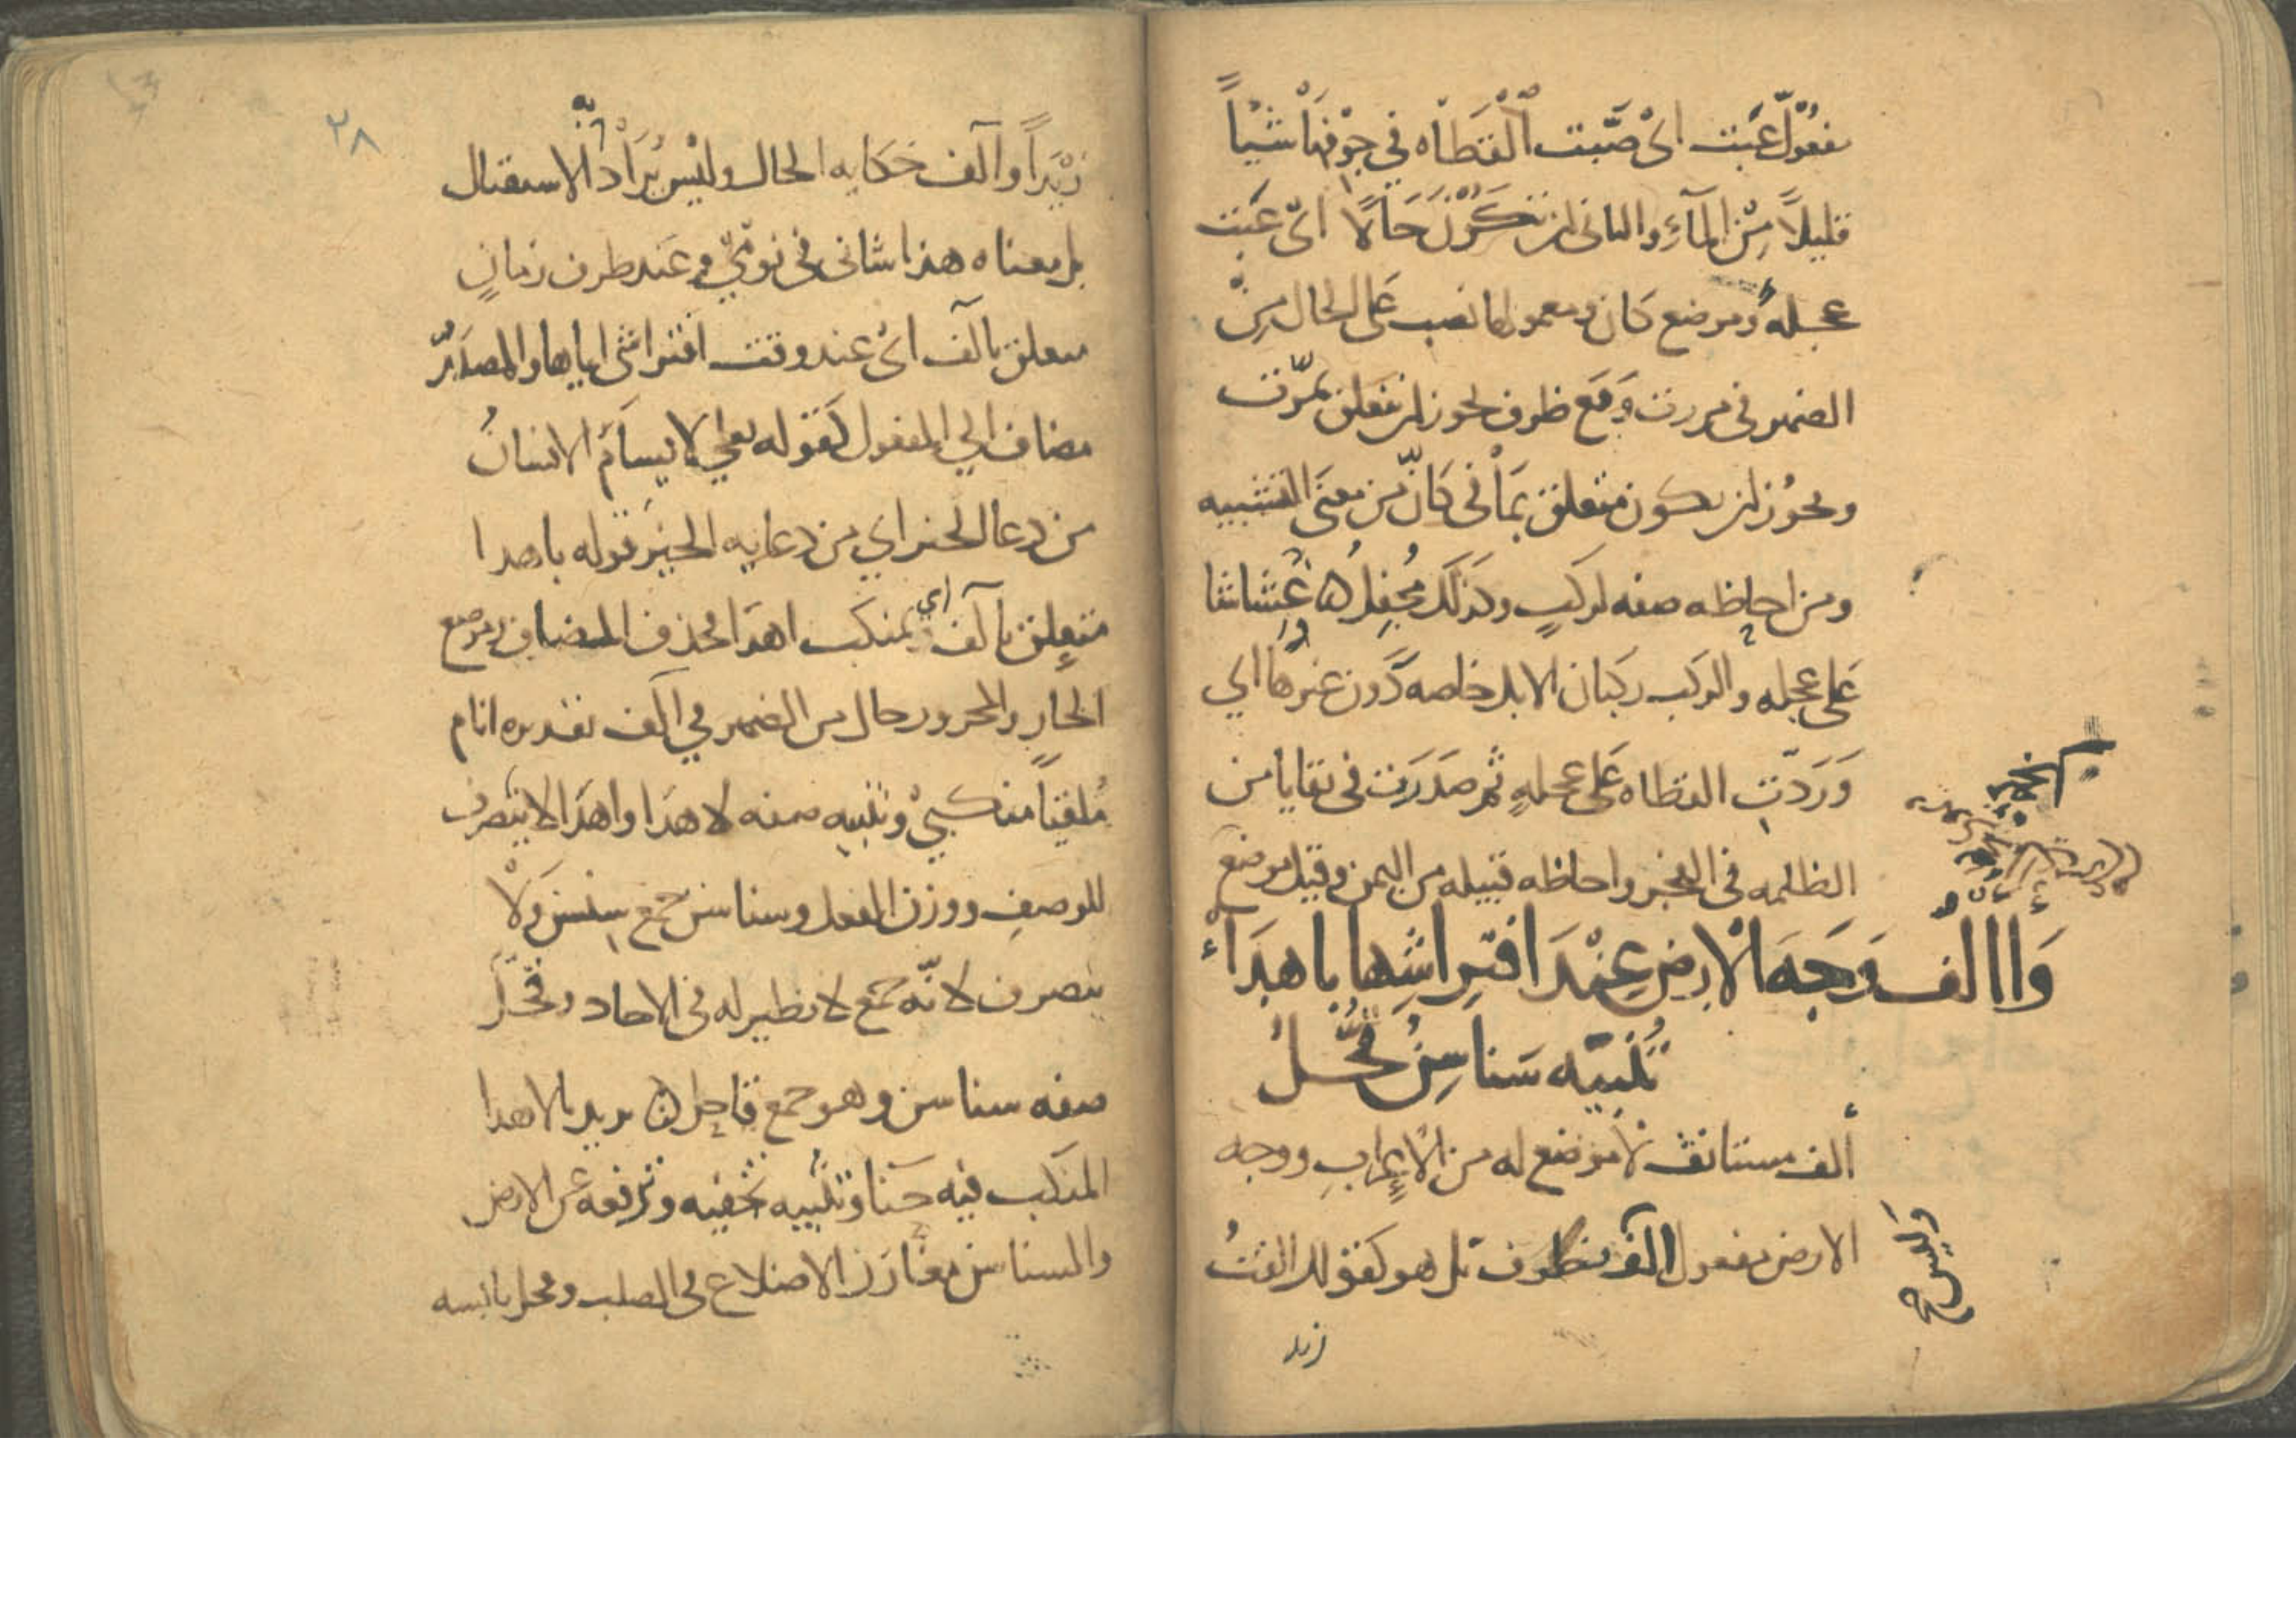 مفعول عبّت اى صبّت القطاه في جوفها شيئاً
قليلاً من المآء والثانى ان تكون حَالاً اى عبّت
عجله وموضع كان ومعمولها نصب عَلى الحال من
الضمير فى مررت وَمَع ظرف يجوز ان يتعلق بمرّت
ويجوُز ان يكون متعلق بمَا فى كَانّ من معنَى التشبيه
ومن احاظه صفه لركبٍ وكذلك مُجفِلُ ه غِشاشا
عَلى عجله والركب ركبان الابل خاصه دَون غيرها اي
وَرَدتِ القطاه عَلى عجلهٍ ثم صدَرت فى بقايا من
الظلمه فى الفجر واحاظه قبيله من اليمن وقيل موضع
وَأالف وَجهَ الارض عِنْدَ افتِراشِها باهدَاءَ
تُنبيّه سَناسِنُ قُحّلُ
ألف مستانف لا موضع له من الاعراب ووجه
الارض مفعول الف بظرف بل هو كقولك الفتُ
وليس ح
زيد
٢٨
زيْداً وآلف حَكايه الحال وليْس يُرَادُ به الاستقبال
بل معناه هذا شانى فى نومي وعَند ظرف زمانٍ
متعلق بآلف اىْ عند وقت افتراشى اياها والمصدَرُ
مضاف الى المفعول كقوله تعالى لا يسأم الانسانُ
من دعا الخير اي من دعايه الخيرَ قوله باهدا
متعلق بآلف اي بمنكب اهدَا فحذف المضاف وموضع
الجار والمجرور حال من الضمير في الف تقديره انام
مُلقيَاً منكبيْ وتنبيه صفه لاهدَا واهدَا لا ينصرف
للوصفِ ووزن الفعل وسناسن جمع سِنسن وَلا
ينصرف لانّه جمع لا نظير له فى الاحاد وقحّل
صفه سناسن وهو جمع قاحِل ه يريد بالاهدا
المنكب فيه حَنا وتنبيه تجفيه وترفعه عن الارض
والسناسن مغارز الاضلاع فى الصلب وقحل يابسه